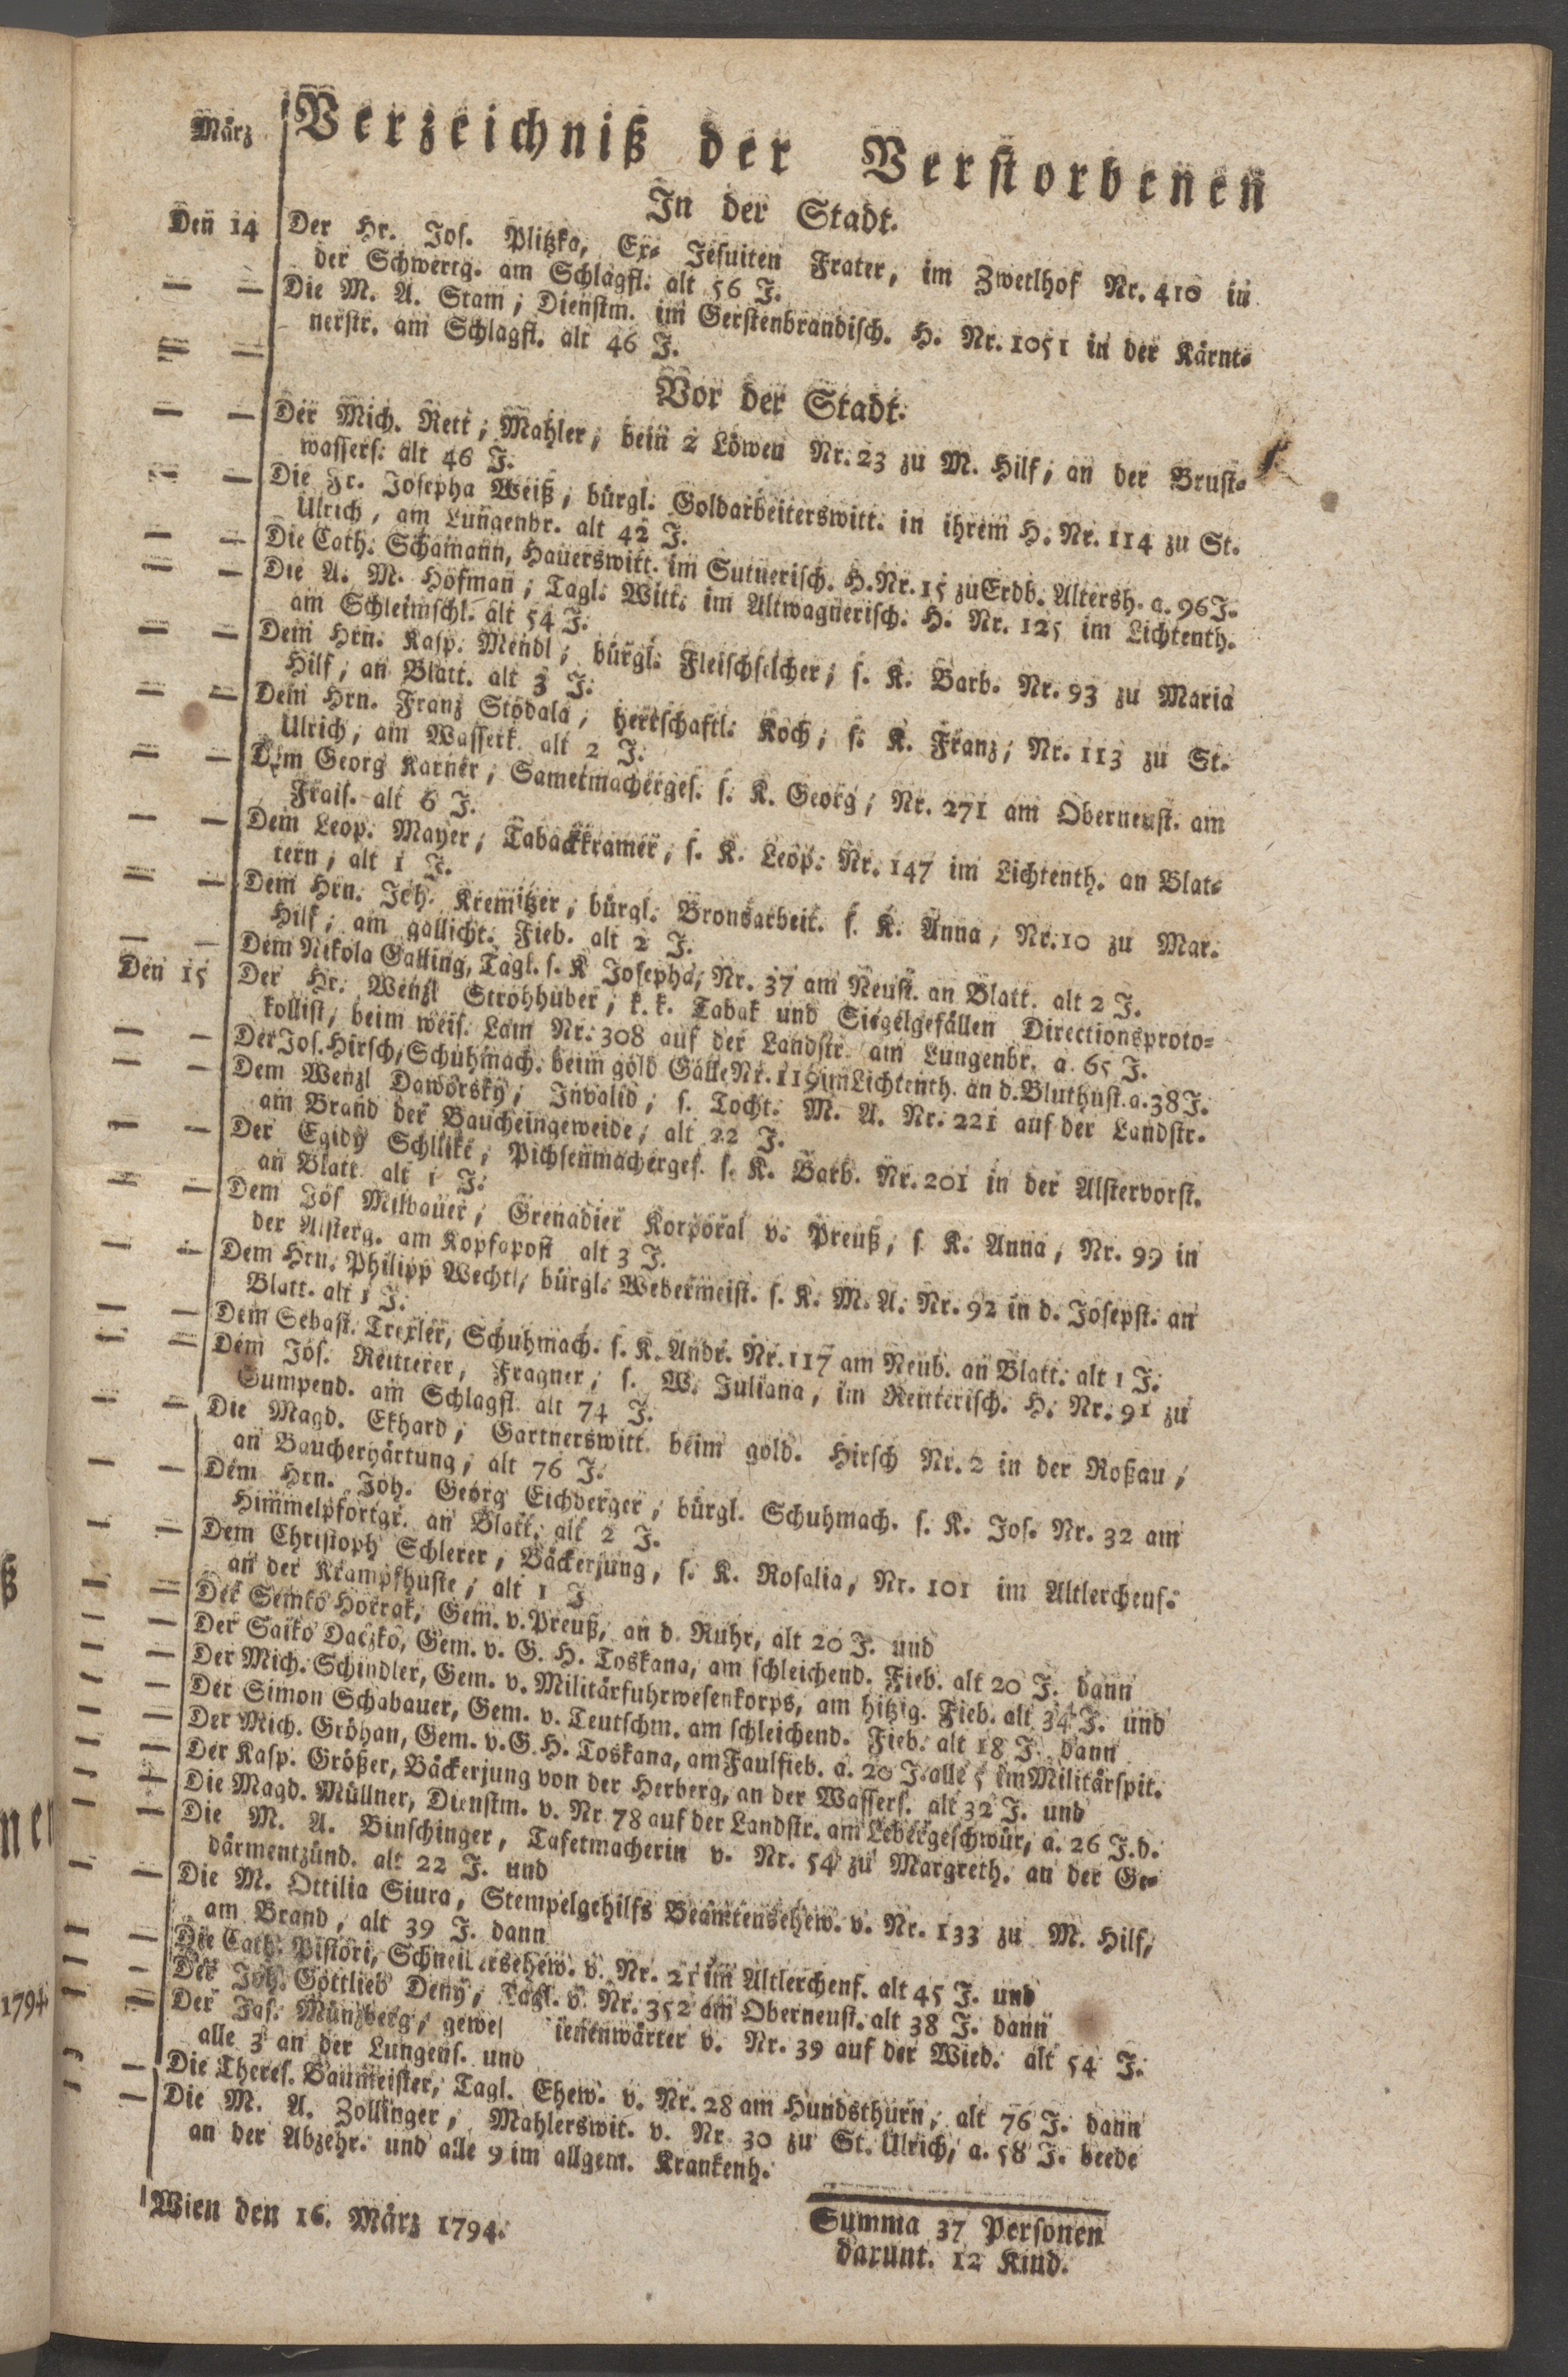 März Verzeichniß der Verstorbenen
In der Stadt.
Den 14 Der Hr. Jos. Plitzka, Ex- Jesuiten Frater, im Zwetlhof Nr. 410 in
der Schwertg. am Schlagfl. alt 56 J.
— — Die M. A. Stam, Dienstm. im Gerstenbrandisch. H. Nr. 1051 in der Kärnt-
nerstr. am Schlagfl. alt 46 J.
— —
Vor der Stadt.
— — Der Mich. Rett, Mahler, bein 2 Löwen Nr. 23 zu M. Hilf, an der Brust-
wassers. alt 46 J.
— — Die Fr. Josepha Weiß, bürgl. Goldarbeiterswitt. in ihrem H. Nr. 114 zu St.
Ulrich, am Lungenbr. alt 42 J.
— — Die Cath. Schamann, Hauerswitt. im Sutnerisch. H. Nr. 15 zu Erdb. Altersh. a. 96 J.
— — Die A. M. Hofman, Tagl. Witt. im Altwagnerisch. H. Nr. 125 im Lichtenth.
am Schleimschl. alt 54 J.
— — Dem Hrn. Kasp. Mendl, bürgl. Fleischselcher, s. K. Barb. Nr. 93 zu Maria
Hilf, an Blatt. alt 3 J.
— — Dem Hrn. Franz Stodala, herrschaftl. Koch, s. K. Franz, Nr. 113 zu St.
Ulrich, am Wasserk. alt 2 J.
— — Dem Georg Karner, Sametmacherges. s. K. Georg, Nr. 271 am Oberneust. am
Frais. alt 6 J.
— — Dem Leop. Mayer, Tabackkramer, s. K. Leop. Nr. 147 im Lichtenth. an Blat-
tern, alt 1 J.
— — Dem Hrn. Joh. Kremitzer, bürgl. Bronsarbeit. s. K. Anna, Nr. 10 zu Mar.
Hilf, am gallicht. Fieb. alt 2 J.
— — Dem Nikola Galling, Tagl. s. K Josepha, Nr. 37 am Neust. an Blatt. alt 2 J.
Den 15 Der Hr. Wenzl Strohhuber, k. k. Tabak und Siegelgefällen Directionsproto-
kollist, beim weis. Lam Nr. 308 auf der Landstr. am Lungenbr. a. 65 J.
— — Der Jos. Hirsch, Schuhmach. beim gold Galle Nr. 119 im Lichtenth. an d. Bluthust. a. 38 J.
— — Dem Wenzl Daworsky, Invalid, s. Tocht. M. A. Nr. 221 auf der Landstr.
am Brand der Baucheingeweide, alt 22 J.
— — Der Egidy Schlike, Pichsenmacherges. s. K. Barb. Nr. 201 in der Alstervorst.
an Blatt. alt 1 J.
— — Dem Jos Milbauer, Grenadier Korporal v. Preuß, s. K. Anna, Nr. 99 in
der Alsterg. am Kopfapost alt 3 J.
— — Dem Hrn. Philipp Wechtl, bürgl. Webermeist. s. K. M. A. Nr. 92 in d. Josepst. an
Blatt. alt 1 J.
— — Dem Sebast. Trexler, Schuhmach. s. K. Andr. Nr. 117 am Neub. an Blatt. alt 1 J.
— — Dem Jos. Reitterer, Fragner, s. W. Juliana, im Reiterisch. H. Nr. 91 zu
Gumpend. am Schlagfl. alt 74 J.
— — Die Magd. Ekhard, Gartnerswitt. beim gold. Hirsch Nr. 2 in der Roßau,
an Baucherhärtung, alt 76 J.
— — Dem Hrn. Joh. Georg Eichberger, bürgl. Schuhmach. s. K. Jos. Nr. 32 am
Himmelpfortgr. an Blatt. alt 2 J.
— — Dem Christoph Schlerer, Bäckerjung, s. K. Rosalia, Nr. 101 im Altlerchenf.
an der Krampfhuste, alt 1 J
— — Der Semko Horrak, Gem. v. Preuß, an d. Ruhr, alt 20 J. und
— — Der Saiko Daczko, Gem. v. G. H. Toskana, am schleichend. Fieb. alt 20 J. dann
— — Der Mich. Schindler, Gem. v. Militärfuhrwesenkorps, am hitzig. Fieb. alt 34 J. und
— — Der Simon Schabauer, Gem. v. Teutschm. am schleichend. Fieb. alt 18 J. dann
— — Der Mich. Gröhan, Gem. v. G. H. Toskana, am Faulfieb. a. 20 J. alle 5 im Militärspit.
— — Der Kasp. Größer, Bäckerjung von der Herberg, an der Wassers. alt 32 J. und
— — Die Magd. Müllner, Dienstm. v. Nr 78 auf der Landstr. am Lebergeschwür, a. 26 J. d.
— — Die M. A. Binschinger, Tafetmacherin v. Nr. 54 zu Margreth. an der Ge-
därmentzünd. alt 22 J. und
— — Die M. Ottilia Siura, Stempelgehilfs Beamtensehew. v. Nr. 133 zu M. Hilf,
am Brand, alt 39 J. dann
— — Die Cath. Pistori, Schneidersehew. v. Nr. 21 im Altlerchenf. alt 45 J. und
— — Der Joh. Gottlieb Deny, Tagl. v. Nr. 352 am Oberneust. alt 38 J. dann
— — Der Jos. Münzberg, gewes ienenwärter v. Nr. 39 auf der Wied. alt 54 J.
alle 3 an der Lungens. und
— — Die Theres. Baumeister, Tagl. Ehew. v. Nr. 28 am Hundsthurn, alt 76 J. dann
— — Die M. A. Zollinger, Mahlerswit. v. Nr 30 zu St. Ulrich, a. 58 J. beede
an der Abzehr. und alle 9 im allgem. Krankenh.
Wien den 16. März 1794.
Summa 37 Personen
darunt. 12 Kind.
1794